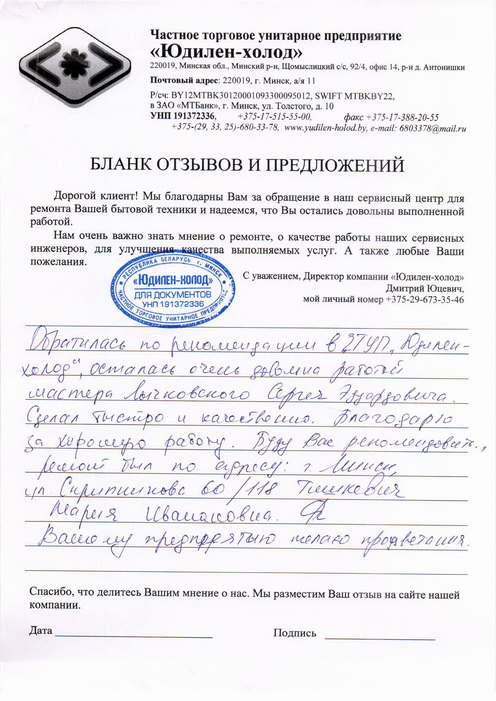 Частное торговое унитарное предприятие
«Юдилен-холод»
220019, Минская обл., Минский р-н, Щомыслицкий с/с, 92/4, офис 14, р-н д. Антонишки
Почтовый адрес: 220019, г. Минск, а/я 11
Р/сч: BY12MTBK30120001093300095012, SWIFT MTBKBY22,
в ЗАО «МТБанк», г. Минск, ул. Толстого, д. 10
УНП 191372336, +375-17-515-55-00, факс +375-17-388-20-55
+375-(29, 33, 25)-680-33-78, www.yudilen-holod.by, e-mail: 6803378@mail.ru
БЛАНК ОТЗЫВОВ И ПРЕДЛОЖЕНИЙ
Дорогой клиент! Мы благодарны Вам за обращение в наш сервисный центр для
ремонта Вашей бытовой техники и надеемся, что Вы остались довольны выполненной
работой.
Нам очень важно знать мнение о ремонте, о качестве работы наших сервисных
инженеров, для улучшения качества выполняемых услуг. А также любые Ваши
пожелания.
РЕСПУБЛИКА БЕЛАРУСЬ Г. МИНСК
«ЮДИЛЕН-ХОЛОД»
ДЛЯ ДОКУМЕНТОВ
УНП 191372336
ЧАСТНОЕ ТОРГОВОЕ УНИТАРНОЕ ПРЕДПРИЯТИЕ
С уважением, Директор компании «Юдилен-холод»
Дмитрий Юцевич,
мой личный номер +375-29-673-35-46
Обратилась по рекомендации в ЧТУП „Юдилен-
холод", осталась очень довольна работой
мастера Лычковского Сергея Эдуардовича.
Сделал быстро и качественно. Благодарю
за хорошую работу. Буду Вас рекомендовать.,
ремонт был по адресу: г. Минск,
ул. Скрипникова 60/118 Тишкевич
Мария Ивановна.
Вашему предприятию желаю процветания.
Спасибо, что делитесь Вашим мнение о нас. Мы разместим Ваш отзыв на сайте нашей
компании.
Дата Подпись